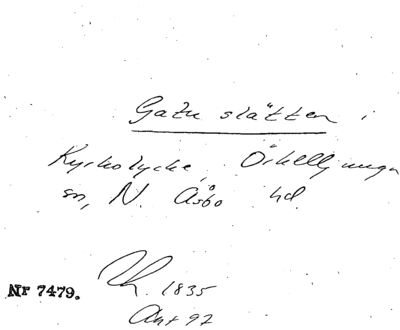 Gatu slätten i
Kyrkolycke, Örkelljunga
sn, N. Åsbo hd.
1835
Nr 7479.
Ant 92